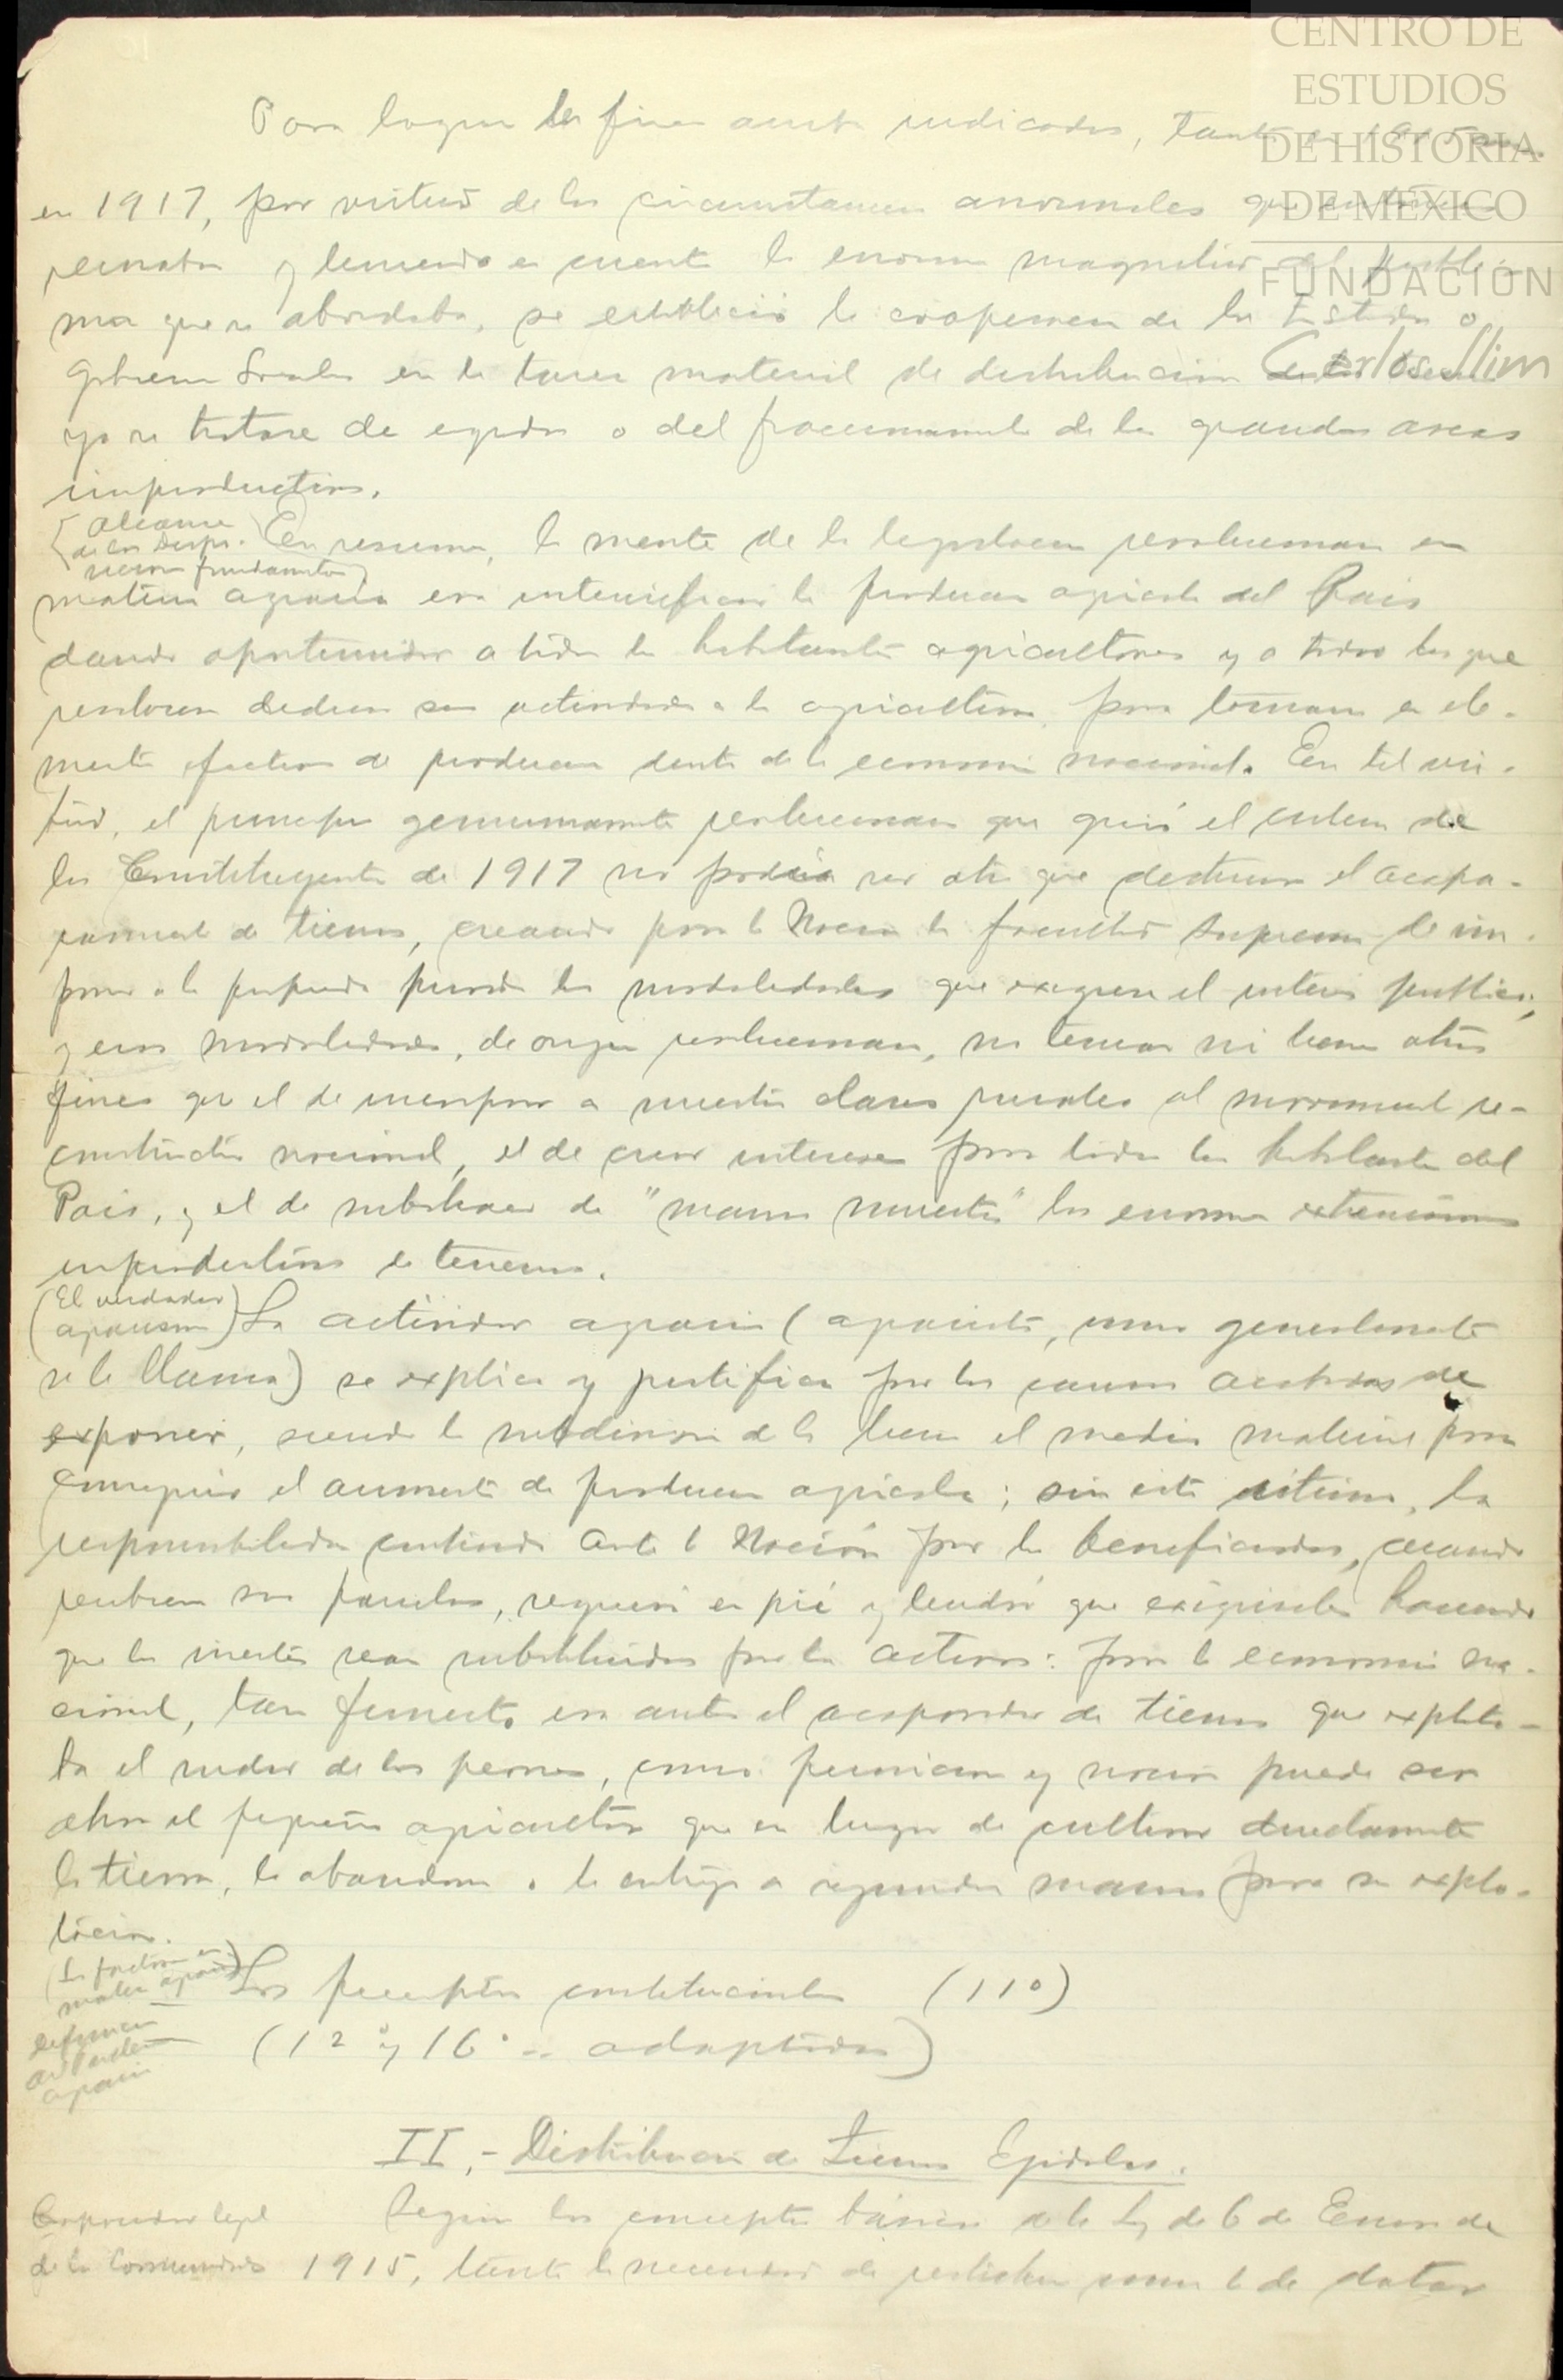 CENTRO DE
ESTUDIOS
DE HISTORIA
DE MÉXICO
FUNDACIÓN
Carlos Slim
Para lograr los fines arriba indicados, tanto en 1915 como
en 1917, por virtud de las circunstancias anormales que entonces
reinaban y teniendo en cuenta la enorme magnitud del proble-
ma que se abordaba, se estableció la cooperación de los Estados o
Gobiernos Locales en la tarea material de distribución de las tierras
ya se tratase de ejidos o del fraccionamiento de las grandes areas
improductivas.
(Alcance
de las Dispo-
siciones fundamentales)
En resumen, la mente de la legislación revolucionaria en
materia agraria era intensificar la producción agrícola del Pais
dando oportunidad a todos los habitantes agricultores y a todos los que
resolvieran dedicar sus actividades a la agricultura, para tornarse en ele-
mentos efectivos de producción dentro de la economía nacional. En tal vir-
tud, el principio genuinamente revolucionario que guió el criterio de
los Constituyentes de 1917 no podía ser otro que destruir el acapa-
ramiento de tierras, creando para la Nación la facultad suprema de im-
poner a la propiedad privada las modalidades que exigiere el interés público;
y esas modalidades, de origen revolucionario, no tenían ni tienen otros
fines que el de incorporar a nuestras clases rurales al movimiento re-
constructivo nacional, el de crear intereses para todos los habitantes del
Pais, y el de substraer de "manos muertas" las enormes extensiones
improductivas de terrenos.
(El verdadero
agrarismo)
La actividad agraria (agrarista, como generalmente
se le llama) se explica y justifica por las causas acabadas de
exponer, siendo la subdivisión de la tierra el medio material para
conseguir el aumento de producción agrícola; sin este criterio, la
responsabilidad contraida ante la Nación por los beneficiados, cuando
reciben sus parcelas, seguirá en pié y tendrá que exigírseles haciendo
que los inertes sean substituidos por los activos: para la economía na-
cional, tan funesto era antes el acaparador de tierras que explota-
ba el sudor de los peones, como pernicioso y nocivo puede ser
ahora el pequeño agricultor que en lugar de cultivar directamente
la tierra, la abandona o la entrega a segundas manos para su explo-
tación.
Los preceptos constitucionales (11º)
(12º y 16º adaptados)
II.- Distribución de Tierras Ejidales.
Capacidad legal
de las Comunidades
Según los conceptos básicos de la Ley de 6 de Enero de
1915, tanto la necesidad de restituir como la de dotar